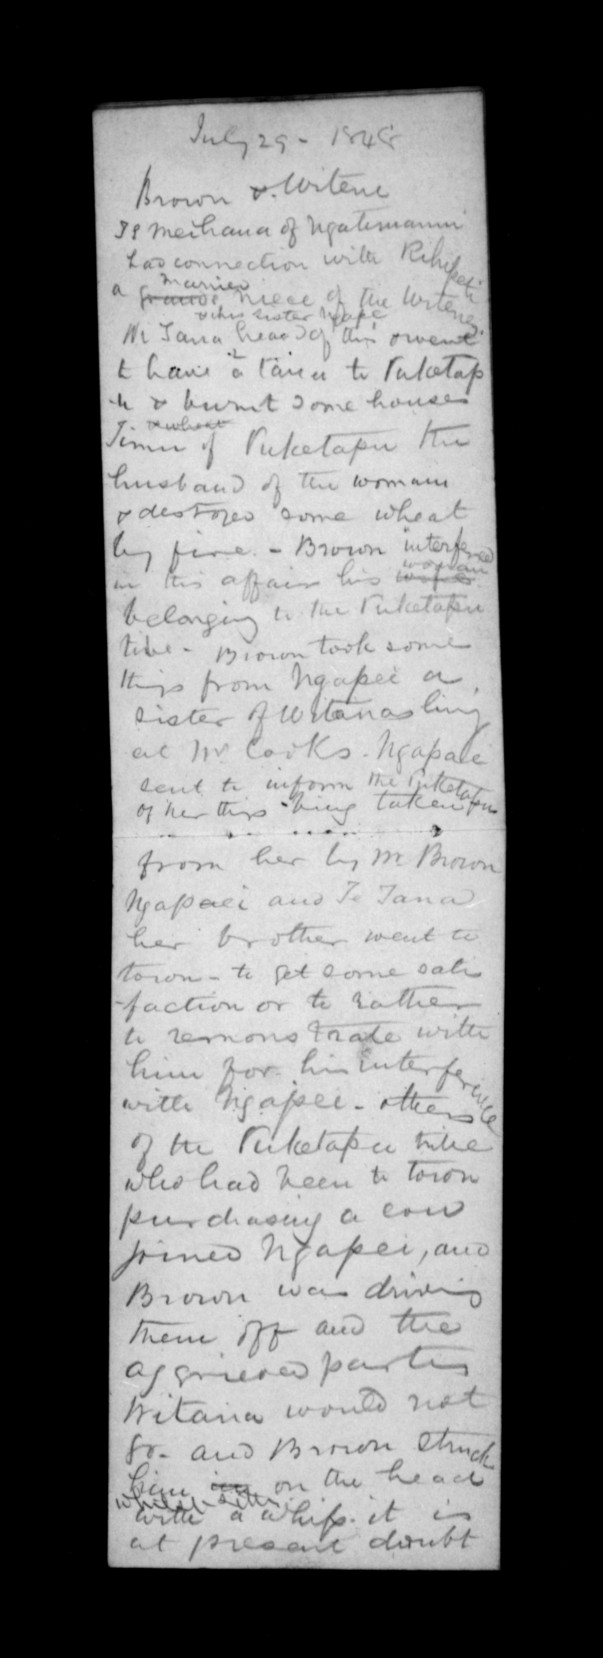 July 29 - 1848
Brown & Witene
Te Meihana of Ngatimaniu
had connection with Rihipeti
a married niece of the Witene,
& his sister Ngape
Wi Tana heard of this & went
to have a taua to Puketap
-u & burnt some houses
& wheat
of Puketapu the
husband of the woman
& destroyed some wheat
by fire. - Brown interfered
in this affair his woman
belonging to the Puketapu
tribe - Brown took some
things from Ngapei a
sister of Witanas living
at Mr Cooks. Ngapaei
sent to inform the Puketapu
of her things being taken
from her by Mr Brown
Ngapaei and Te Tana
her brother went to
town - to get some satis
-faction or to rather
to remonstrate with
him for his interference
with Ngapei - others
of the Puketapu tribe
who had been to town
purchasing a cow
joined Ngapei, and
Brown was driving
them off and the
aggrieved parties
Witana would not
go - and Brown struck
him on the head
with a whip. it is
at present doubt